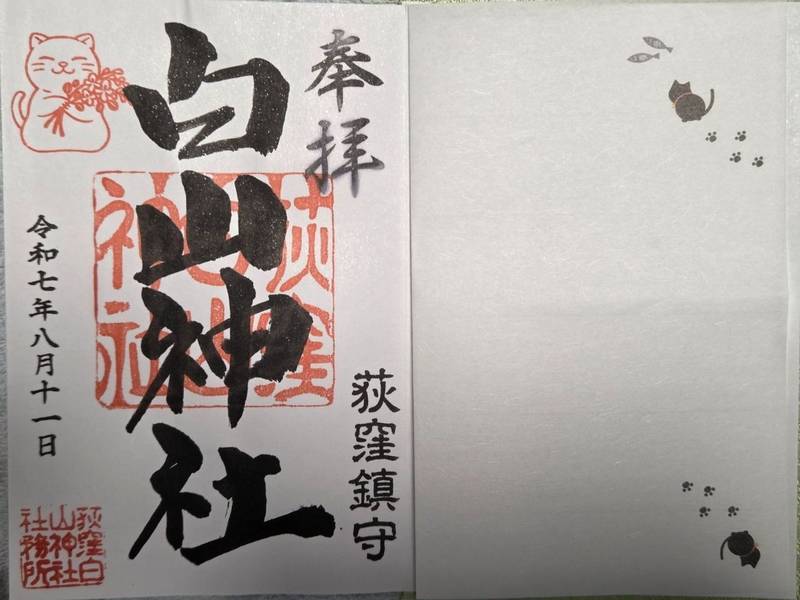 奉拝
荻窪鎮守
白山神社
荻窪
白山
神社
令和七年八月十一日
荻窪白
山神社
社務所